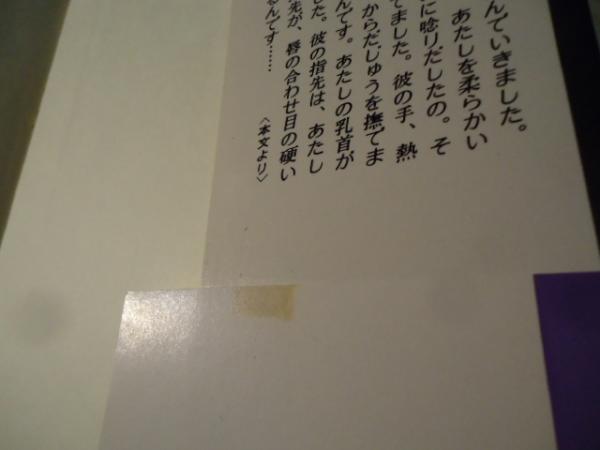 んでいきました。
あたしを柔らかい
に唸りだしたの。そ
てました。彼の手、熱
からだじゅうを撫でま
んです。あたしの乳首が
した。彼の指先は、あたし
先が、唇の合わせ目の硬い
るんです……
〈本文より〉